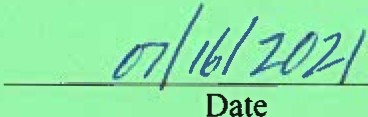 07/16/2021
Date